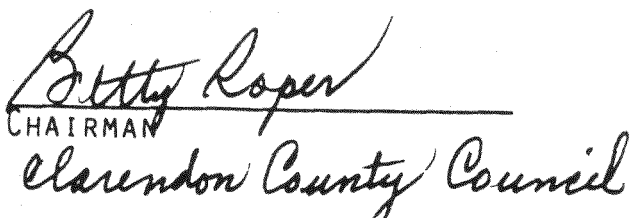 Betty Roper
CHAIRMAN
Clarendon County Council